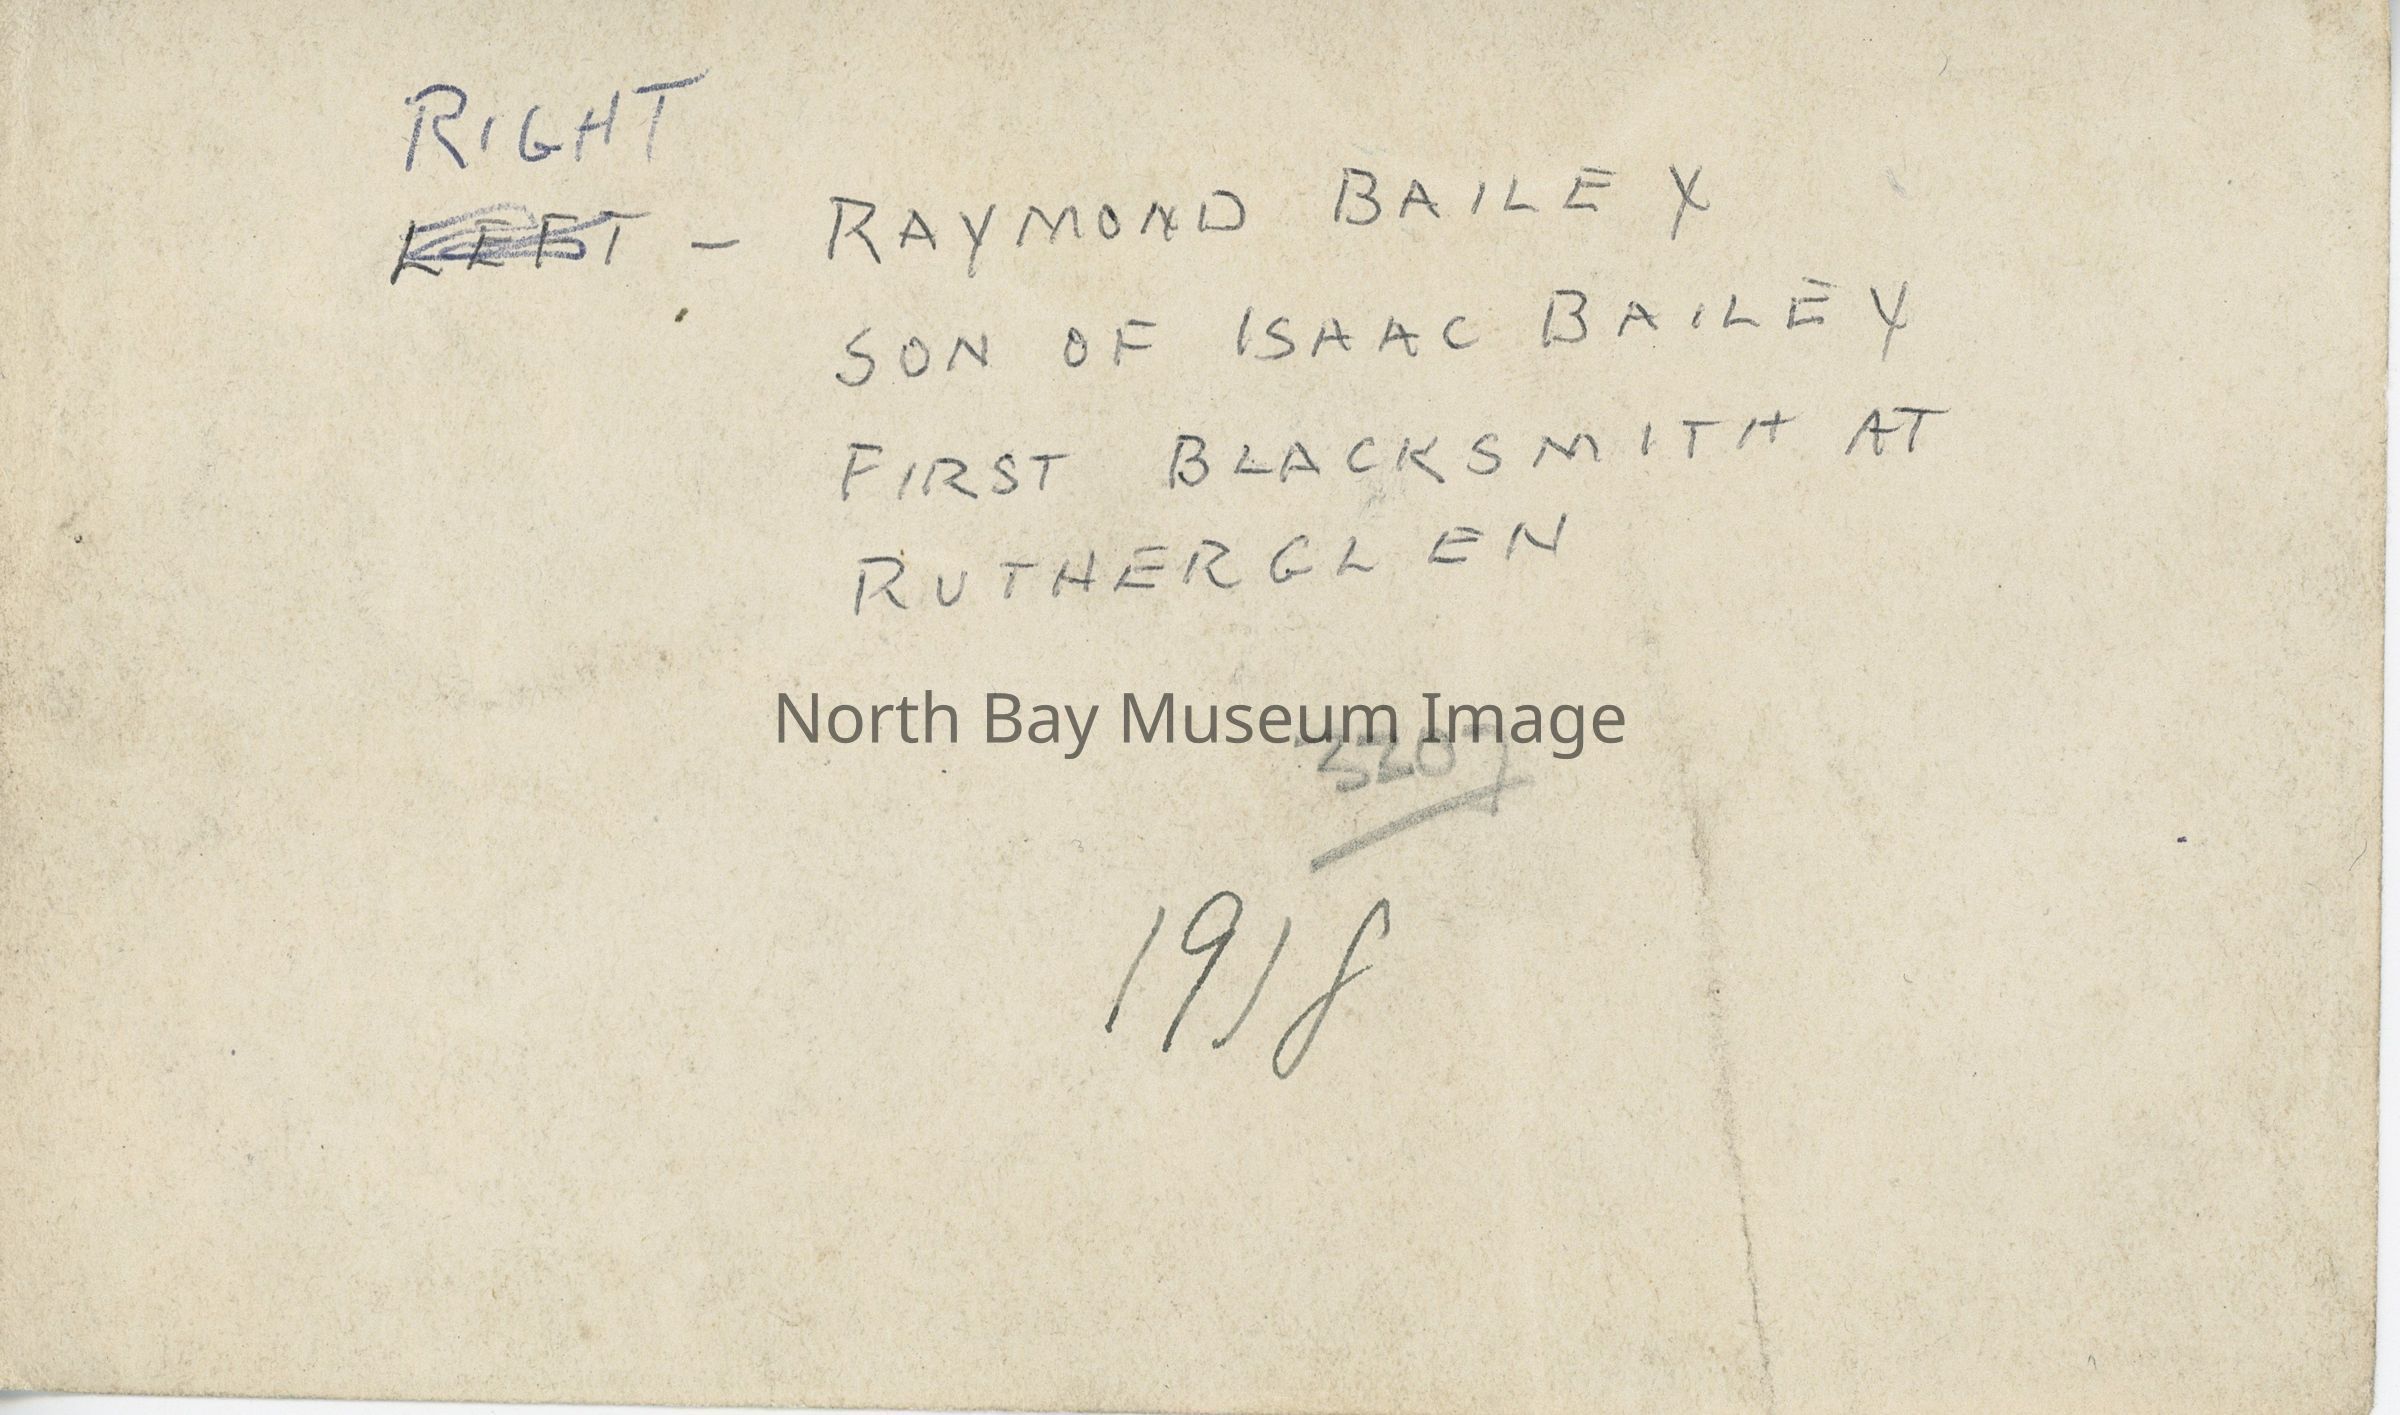 RIGHT
LEFT - RAYMOND BAILEY
SON OF ISAAC BAILEY
FIRST BLACKSMITH AT
RUTHERGLEN
North Bay Museum Image
3207
1918